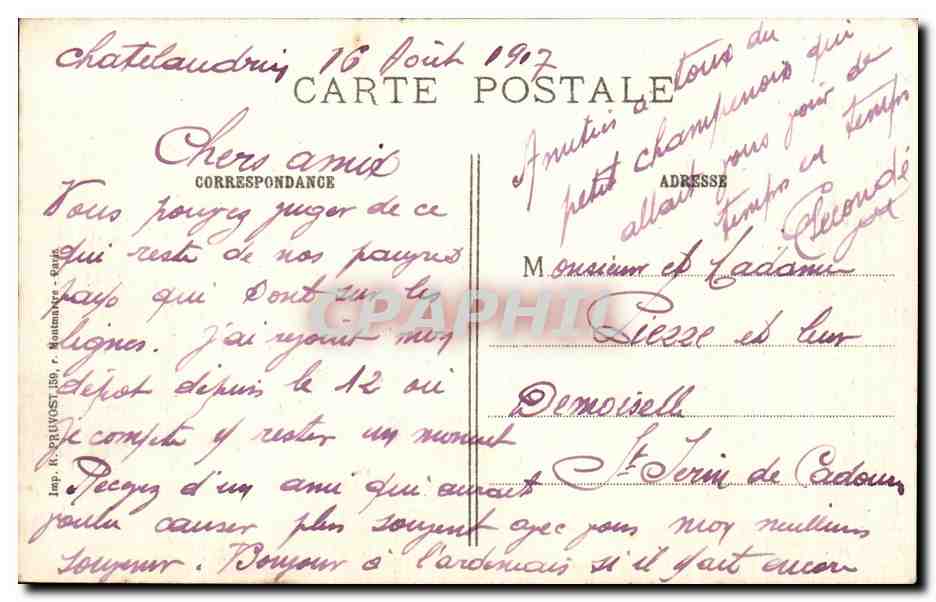 Chatelaudrin 16 Août 1917
CARTE POSTALE
Chers amix
CORRESPONDANCE
Vous pouvez juger de ce
qui reste de nos pauvres
pays qui sont sur les
lignes. j'ai rejoint mon
dépot depuis le 12 où
je compte y rester un moment
Recevez d'un ami qui aurait
voulu causer plus souvent avec vous mes meilleurs
souvenir. Bonjour à l'ardennais si il y ait encore
Amitiés a toux du
petit champenois qui
allait vous voir de
temps en temps
Secondé
ADRESSE
Monsieur et Madame
Pierre et leur
Demoiselle
St Jerin de Cadours
Imp. R. PRUVOST, 159, r. Montmartre - Paris.
CPAPHIL